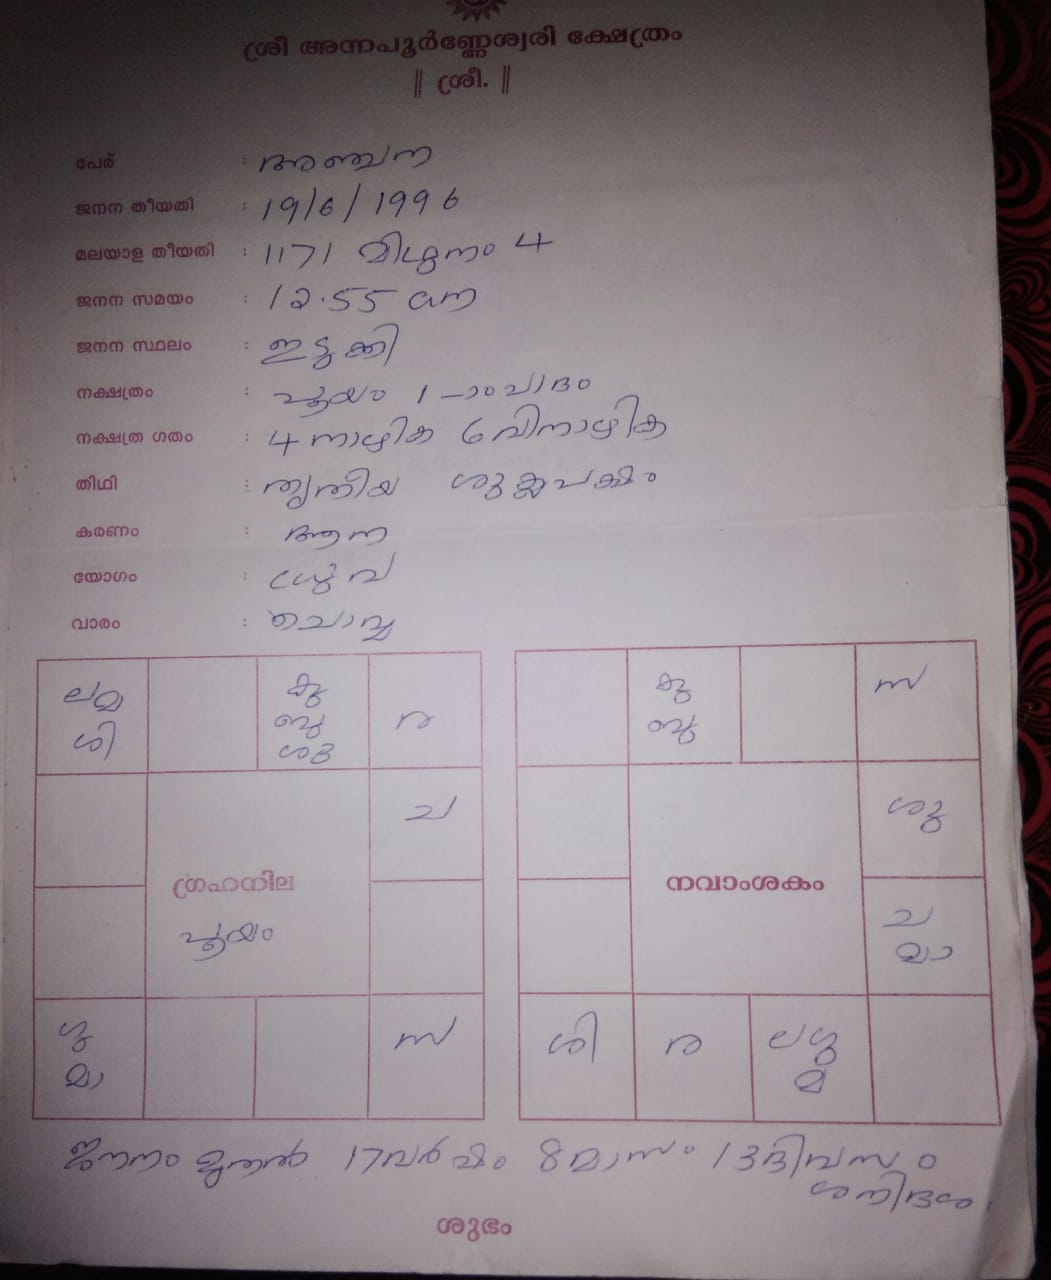 ശ്രീ അന്നപൂർണ്ണേശ്വരി ക്ഷേത്രം
|| ശ്രീ. ||
പേര് : അഞ്ചന
ജനന തീയതി : 19/6/1996
മലയാള തീയതി : 1171 മിഥുനം 4
ജനന സമയം : 12.55 am
ജനന സ്ഥലം : ഇടുക്കി
നക്ഷത്രം : പൂയം 1-ാംപാദം
നക്ഷത്ര ഗതം : 4 നാഴിക 6 വിനാഴിക
തിഥി : തൃതീയ ശുക്ലപക്ഷം
കരണം : ആന
യോഗം : ധ്രുവ
വാരം : ചൊവ്വ
ലമ കു കു സ
ശി ബു ര ബു
ച ശു
ഗ്രഹനില നവാംശകം
പൂയം ച
മാ
ഗു സ ശി ര ലഗു
മാ മ
ജനനം മുതൽ 17വർഷം 8മാസം 13ദിവസം
ശനിദശ.
ശുഭം